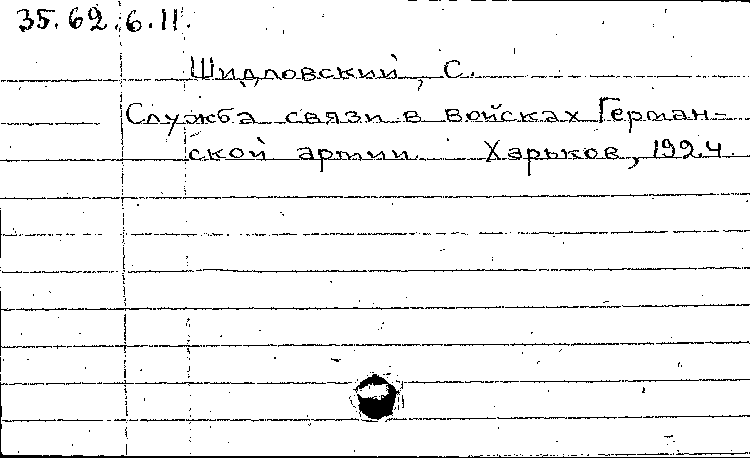 35.62.6.11.
Шидловский, С.
Служба связи в войсках Герман-
ской армии. Харьков, 1924.